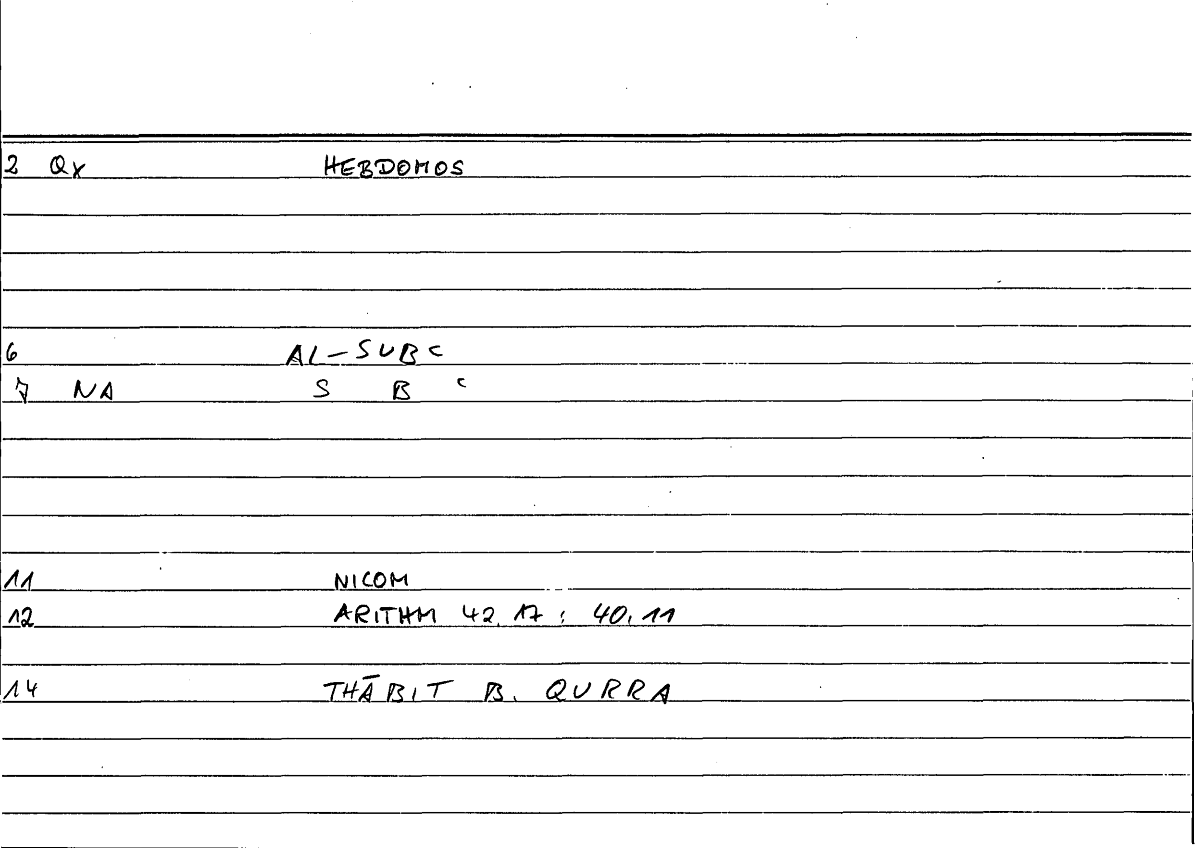 2 Qx HEBDOMOS
6 AL-SUBʿ
7 NA S B ʿ
11 NICOM
12 ARITHM 42.17 : 40.11
14 THĀBIT B. QURRA